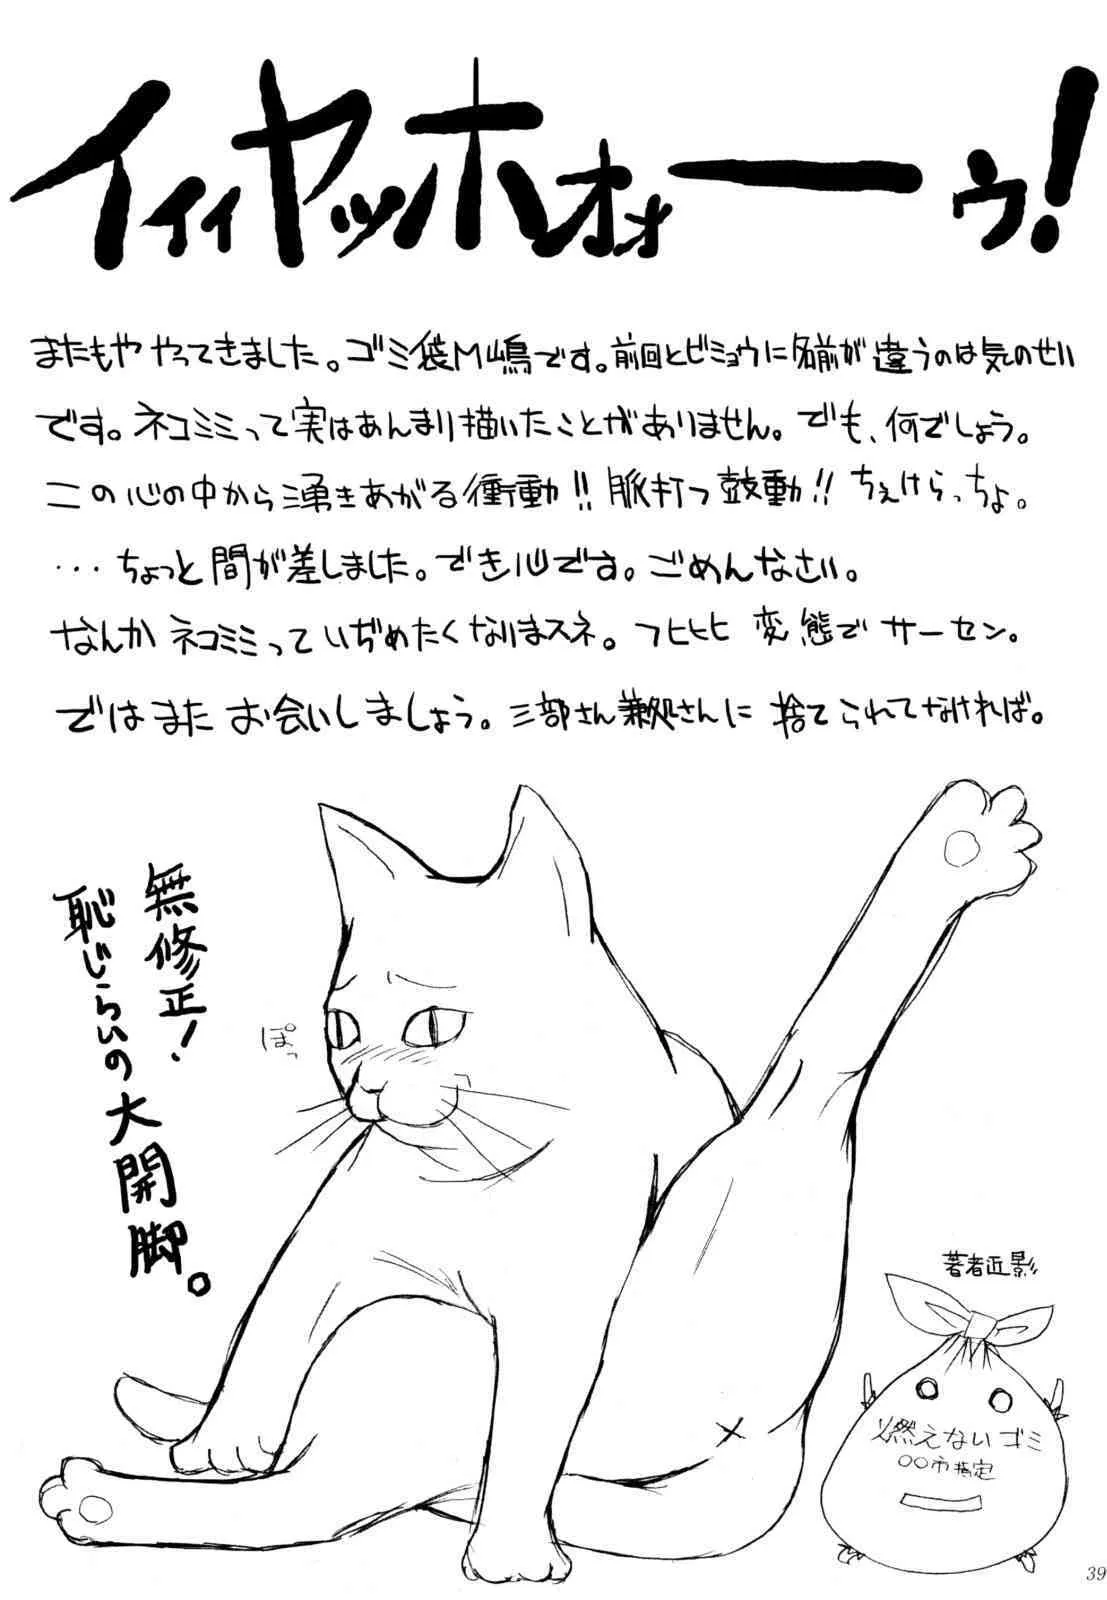 イィィヤッホォォーーゥ!
またもややってきました。ゴミ袋M嶋です。前回とビミョウに名前が違うのは気のせい
です。ネコミミって実はあんまり描いたことがありません。でも、何でしょう。
この心の中から湧きあがる衝動!!脈打つ鼓動!!ちぇけらっちょ。
・・・ちょっと間が差しました。でき心です。ごめんなさい。
なんかネコミミっていぢめたくなりまスネ。フヒヒヒ 変態でサーセン。
ではまたお会いしましょう。三部さん兼処さんに捨てられてなければ。
無修正!
恥じらいの大開脚。
ぽっ
著者近影
燃えないゴミ
〇〇市指定
39